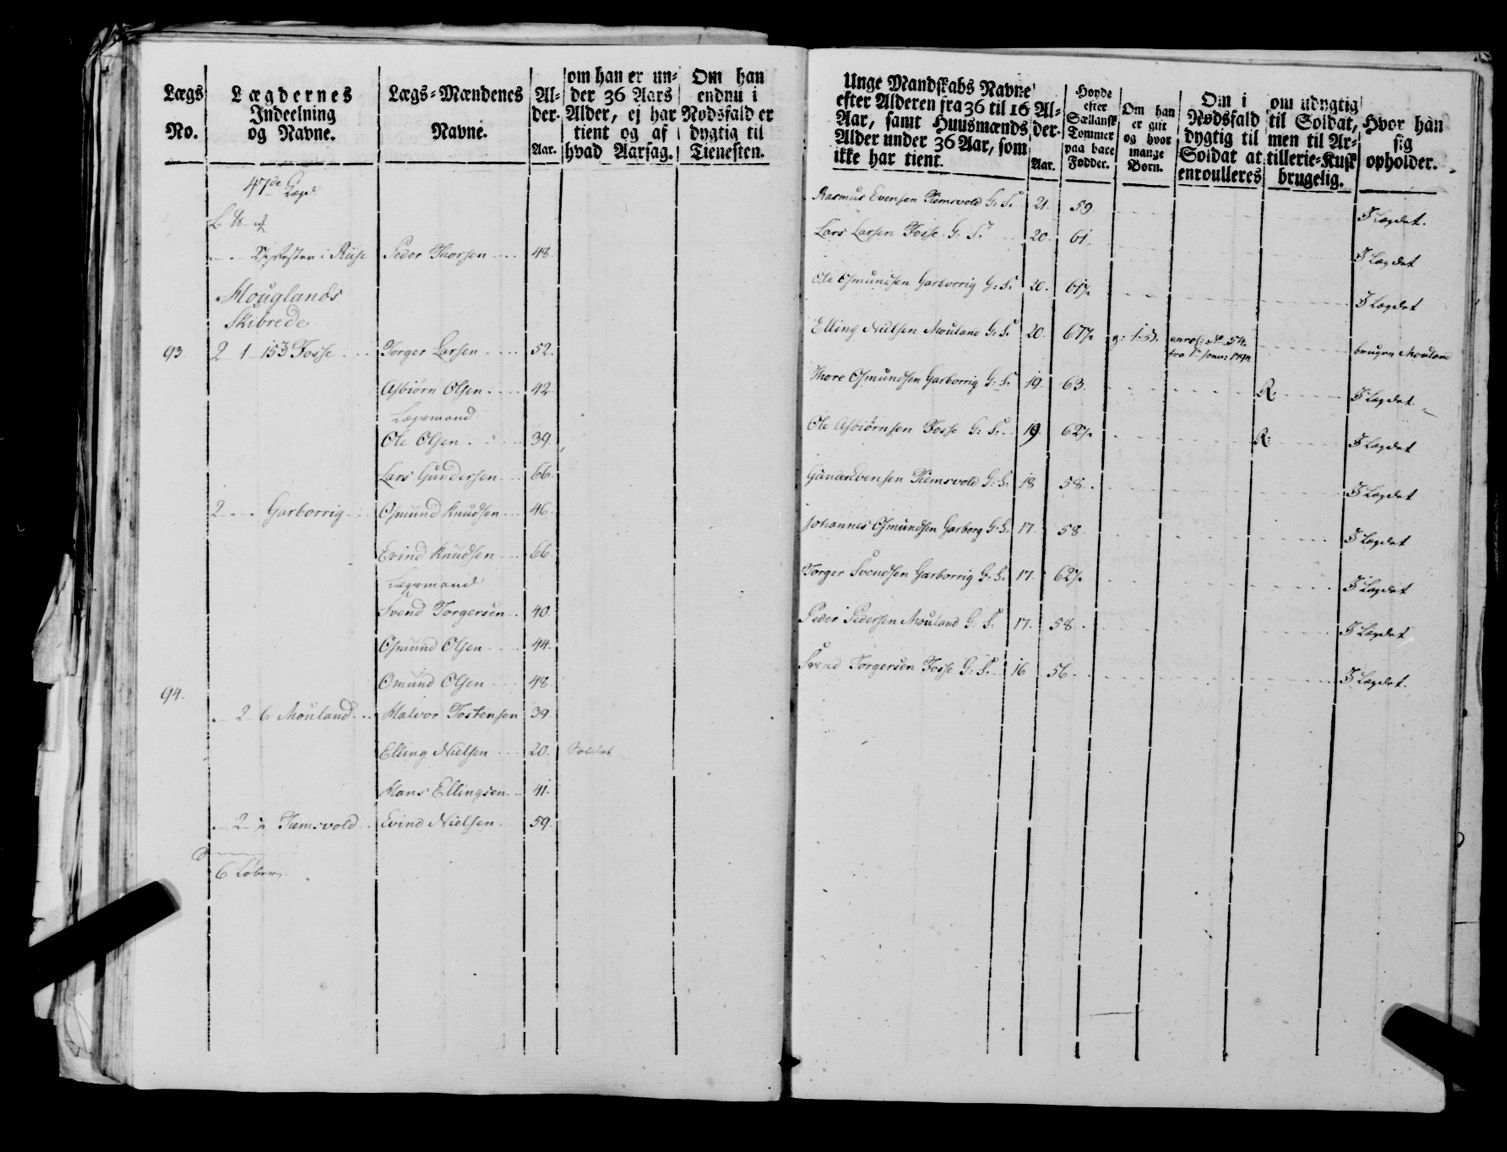 Lægs No.
Lægdernes Indeelning og Navne.
Lægs-Mændenes Navne.
Al-der. Aar.
om han er un-der 36 Aars Alder, ej har tient og af hvad Aarsag.
Om han endnu i Nødsfald er dygtig til Tienesten.
47de Lægd.
Riise Peder Thorsen 48
Mouglands
Skibrede
93. 2 1 153 Fosse Torger Larsen 52.
Asbiørn Olsen 42
Lægsmand
Ole Olsen 39.
Lars Gundersen 66.
2 Garborrig Osmund Knudsen 46.
Evind Knudsen 66.
Lægsmand
Svend Torgersen 40
Osmund Olsen 44.
Omund Olsen 48
94.
2 6 Mouland Halvor Tostensen 39.
Elling Nielsen 20. Soldat
Hans Ellingsen 41.
2 Tiemsvold Evind Nielsen 59.
6 Løber
Unge Mandskabs Navne efter Alderen fra 36 til 16 Aar, samt Huusmænds Alder under 36 Aar, som ikke har tient.
Al-der. Aar.
Høyde efter Sællansk Tommer paa bare Fødder.
Om han er gift og hvor mange Børn.
Om i Nødsfald dygtig til Soldat at enroulleres
om udygtig til Soldat, men til Ar-tillerie-Kusk brugelig.
Hvor han sig opholder.
Rasmus Evensen Tiemsvold G: S. 21. 59. I Lægdet.
Lars Larsen Fosse G. S. 20. 61. I Lægdet
Ole Osmundsen Garborrig G: S. 20. 61½ I Lægdet
Elling Nielsen Mouland G: S. 20. 67½ enrol: No 54. bruger Mouland
Thore Osmundsen Garborrig G: S. 19. 63. R: I Lægdet
Ole Asbiørnsen Fosse G: S. 19 62½ R: I Lægdet
Gunder Evensen Tiemsvold G: S. 18 58. I Lægdet
Johannes Osmundsen Garborg G: S. 17. 58 I Lægdet
Torger Svendsen Garborrig G: S. 17. 62½ I Lægdet
Peder Pedersen Mouland G. S. 17. 58. I Lægdet
Svend Torgersen Fosse G: S. 16 56. I Lægdet.